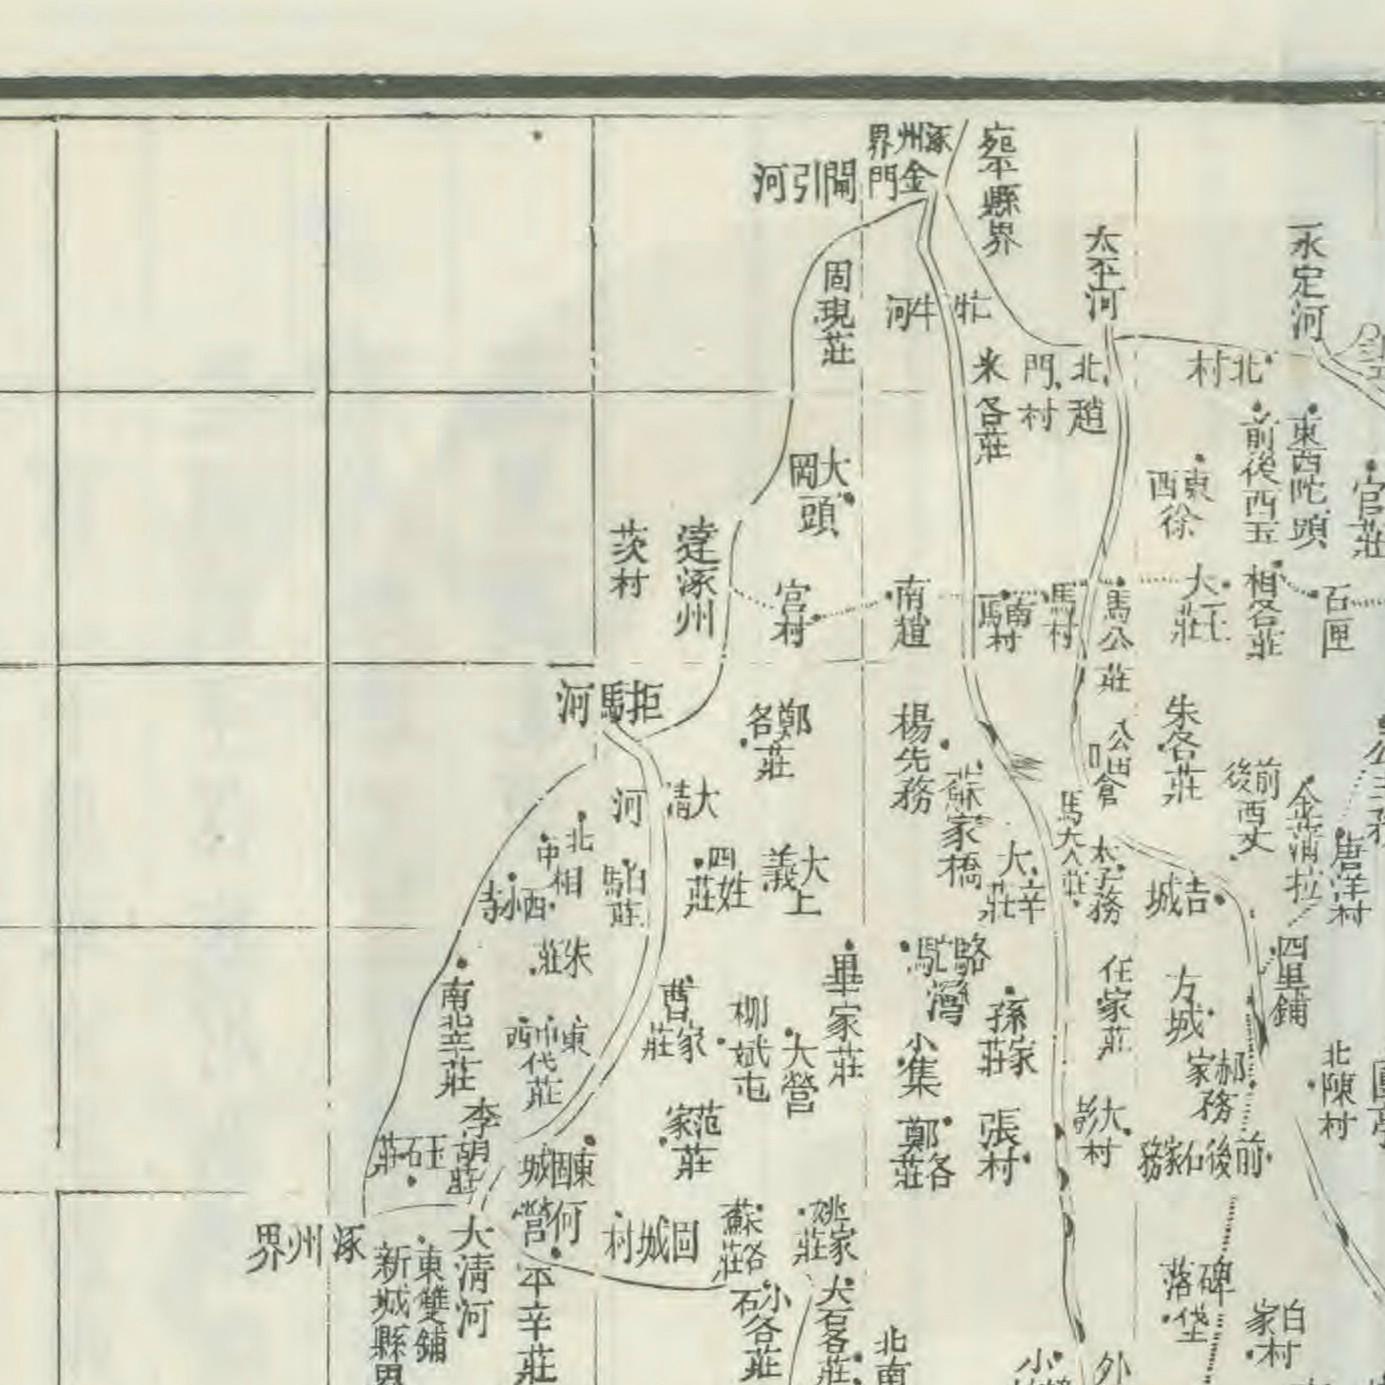 涿州界
金門閘引河
宛平縣界
太平河
永定河
固現莊
牤牛河
米各莊
北趙門村
北村
前後西玉
東西陀頭
官莊
大岡頭
東西徐
茨村
達涿州
宮村
南趙
南馬村
馬村
馬公莊
大王莊
相各莊
石匣
拒馬河
鄭各莊
楊先務
公田倉
朱各莊
前後西丈
大清河
蘇家橋
馬大人莊
太子務
唐洋村
北相
中
西小寺
白馬莊
四姓莊
大義上
大辛莊
吉城
朱莊
南北辛莊
駱駝灣
四里鋪
畢家莊
曹家莊
柳斌屯
大營
孫家莊
任家莊
方城
東中西代莊
小集
郝家務
北陳村
李胡莊
范家莊
鄭各莊
張村
大彭村
前後石家務
玉石莊
東固城
何營
固城村
蘇各莊
姚家莊
涿州界
新城縣界
東雙鋪
大清河
平辛莊
小石各莊
大石各莊
北南
碑落垡
白家村
小
外